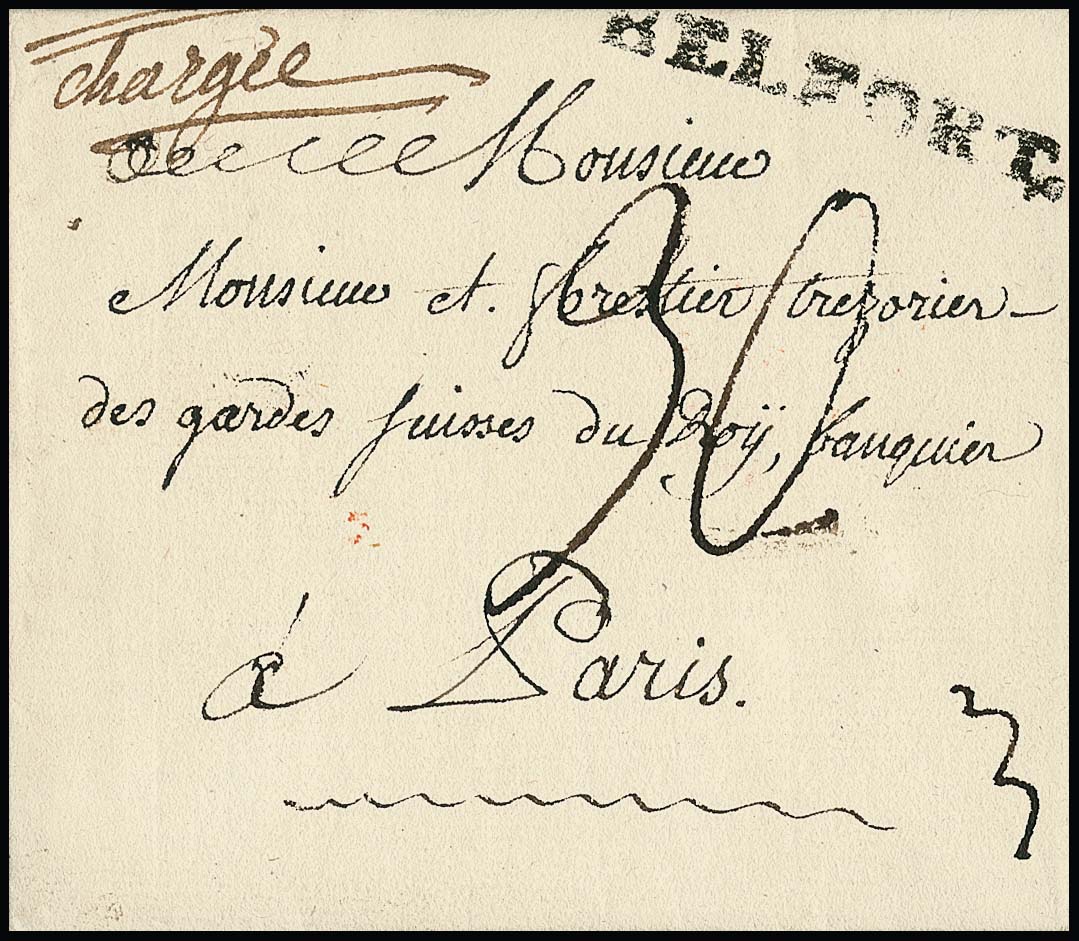 chargée
BELFORT
Monsieur
Monsieur et. forestier trezorier
des gardes suisses du Roÿ, banquier
30
à Paris.